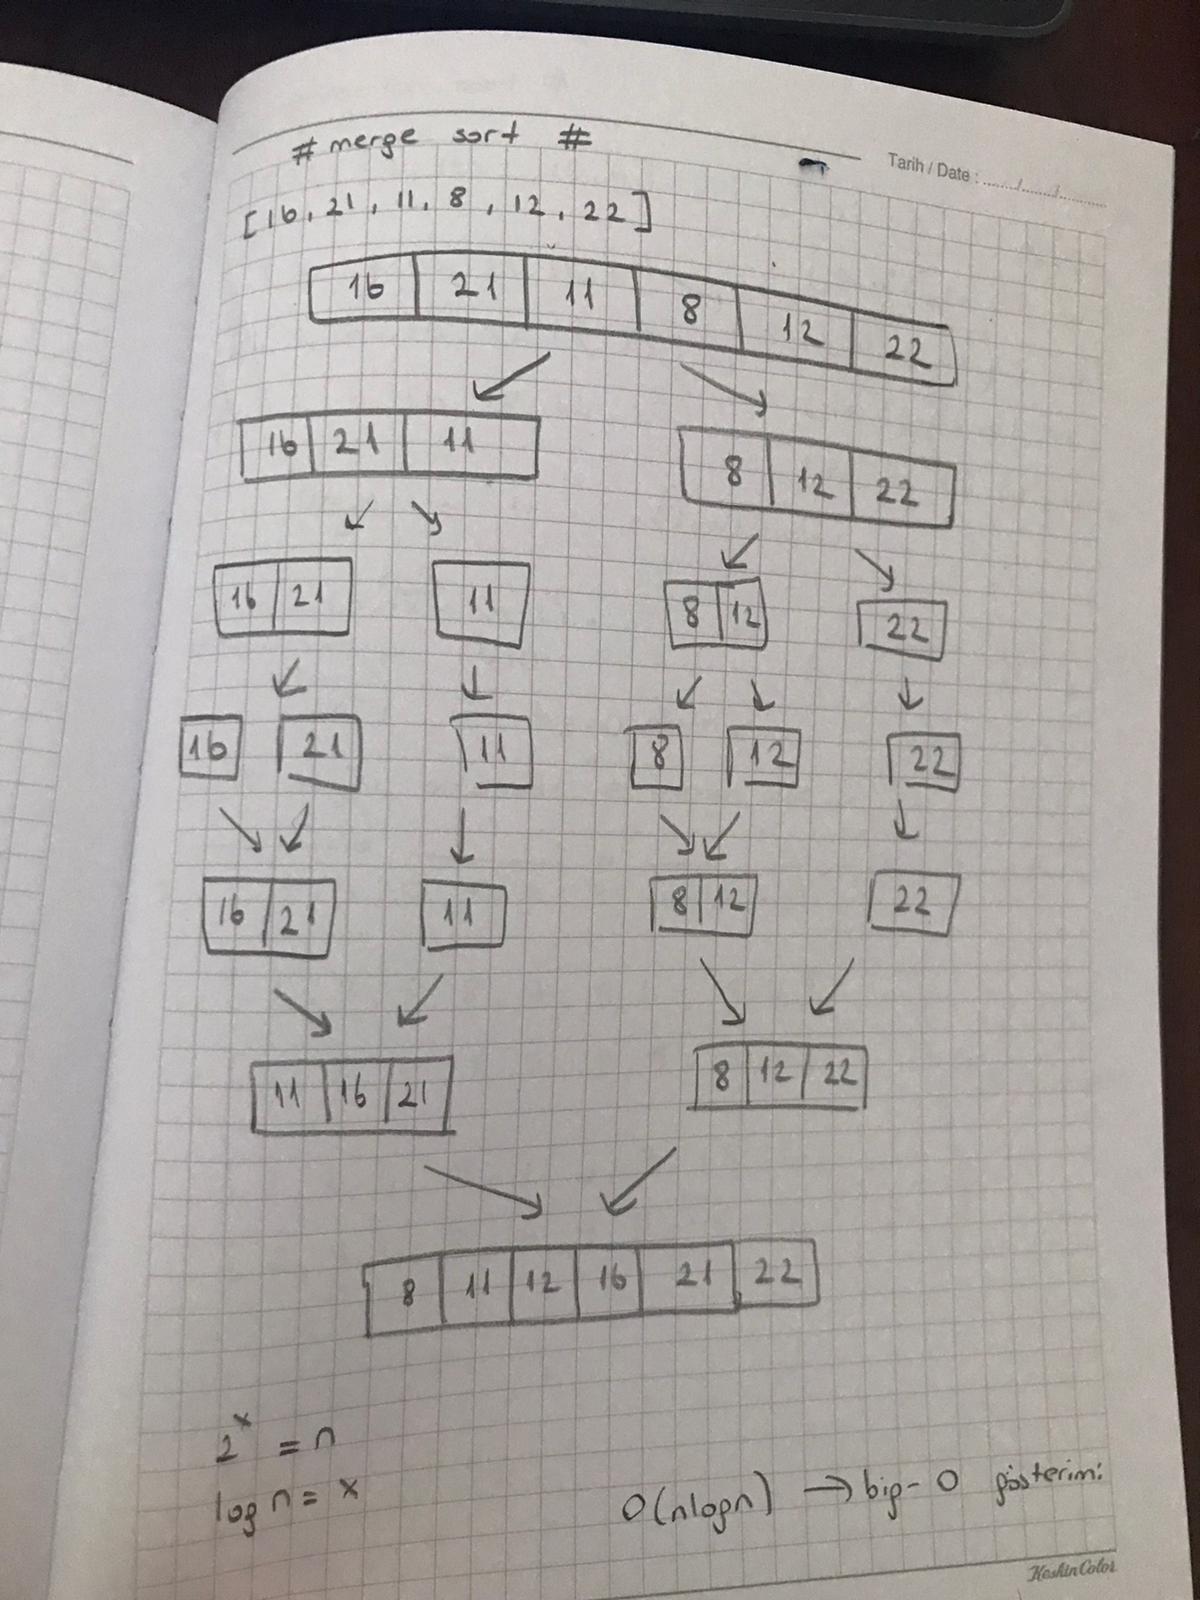 # merge sort #
Tarih / Date : ......./......./...........
[16, 21, 11, 8, 12, 22]
16 21 11 8 12 22
16 21 11 8 12 22
16 21 11 8 12 22
16 21 11 8 12 22
16 21 11 8 12 22
11 16 21 8 12 22
8 11 12 16 21 22
2ˣ = n
log n = x
O(nlogn) → big-O gösterimi
KeskinColor